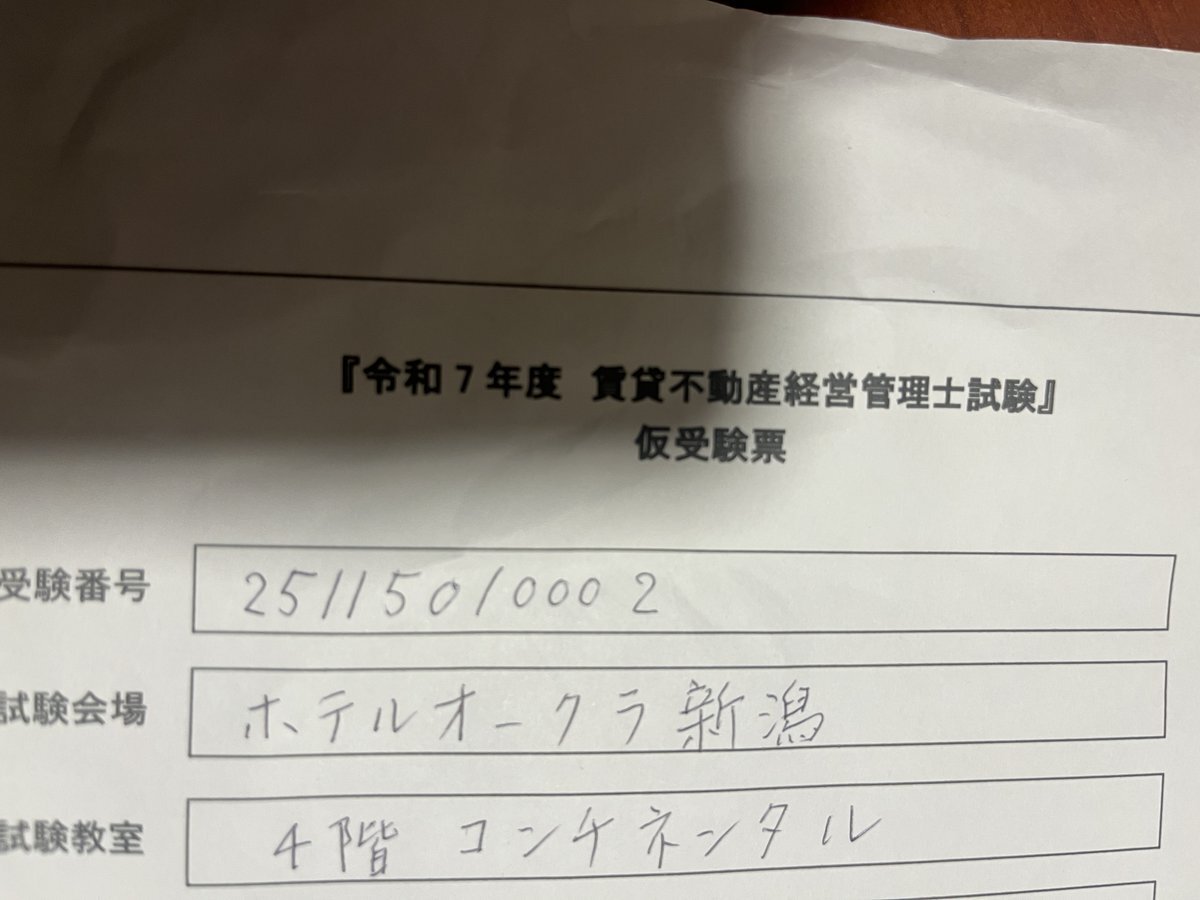 『令和7年度 賃貸不動産経営管理士試験』
仮受験票
受験番号 25115010002
試験会場 ホテルオークラ新潟
試験教室 4階 コンチネンタル